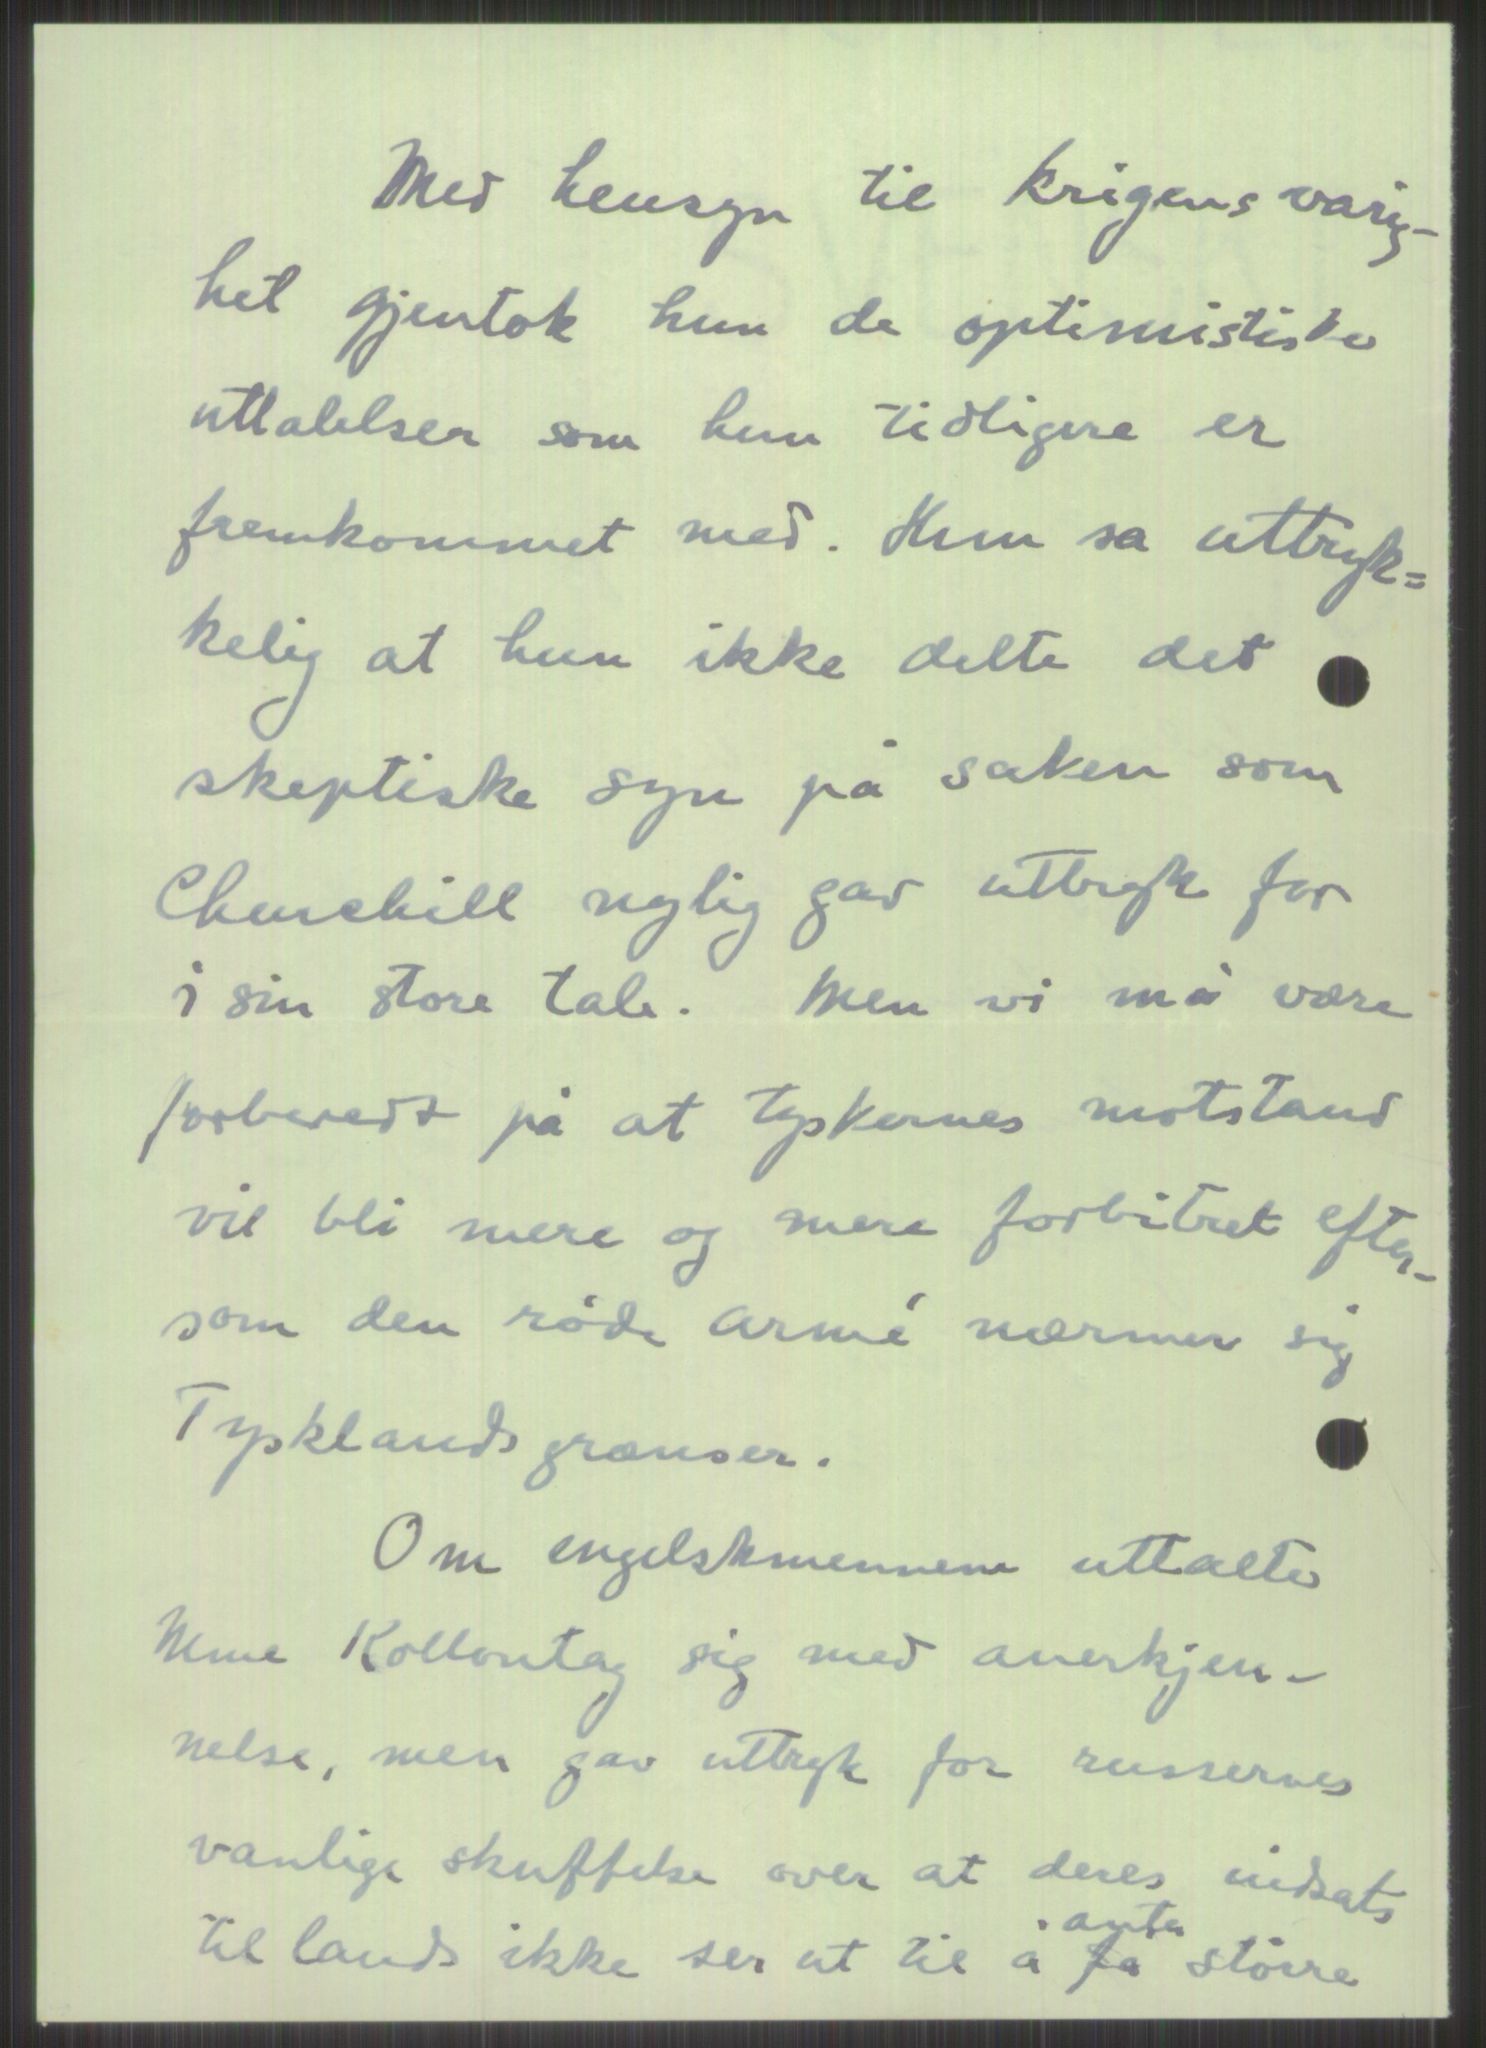 Med hensyn til krigens varig-
het gjentok hun de optimistiske
uttalelser som hun tidligere er
fremkommet med. Hun sa uttryk=
kelig at hun ikke delte det
skeptiske syn på saken som
Churchill nylig gav uttryk for
i sin store tale. Men vi må være
forberedt på at tyskernes motstand
vil bli mere og mere forbitret efter-
som den røde armé nærmer sig
Tysklands grænser.
Om engelskmennene uttalte
Mme Kollontay sig med anerkjen-
nelse, men gav uttryk for russernes
vanlige skuffelse over at deres indsats
til lands ikke ser ut til å anta større